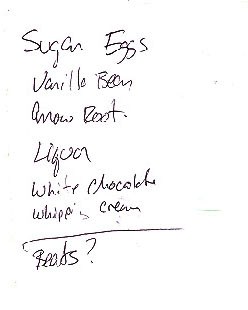 Sugar Eggs
Vanilla Bean
Arrow Root.
Liquor
White Chocolate
Whipping cream
Beats?